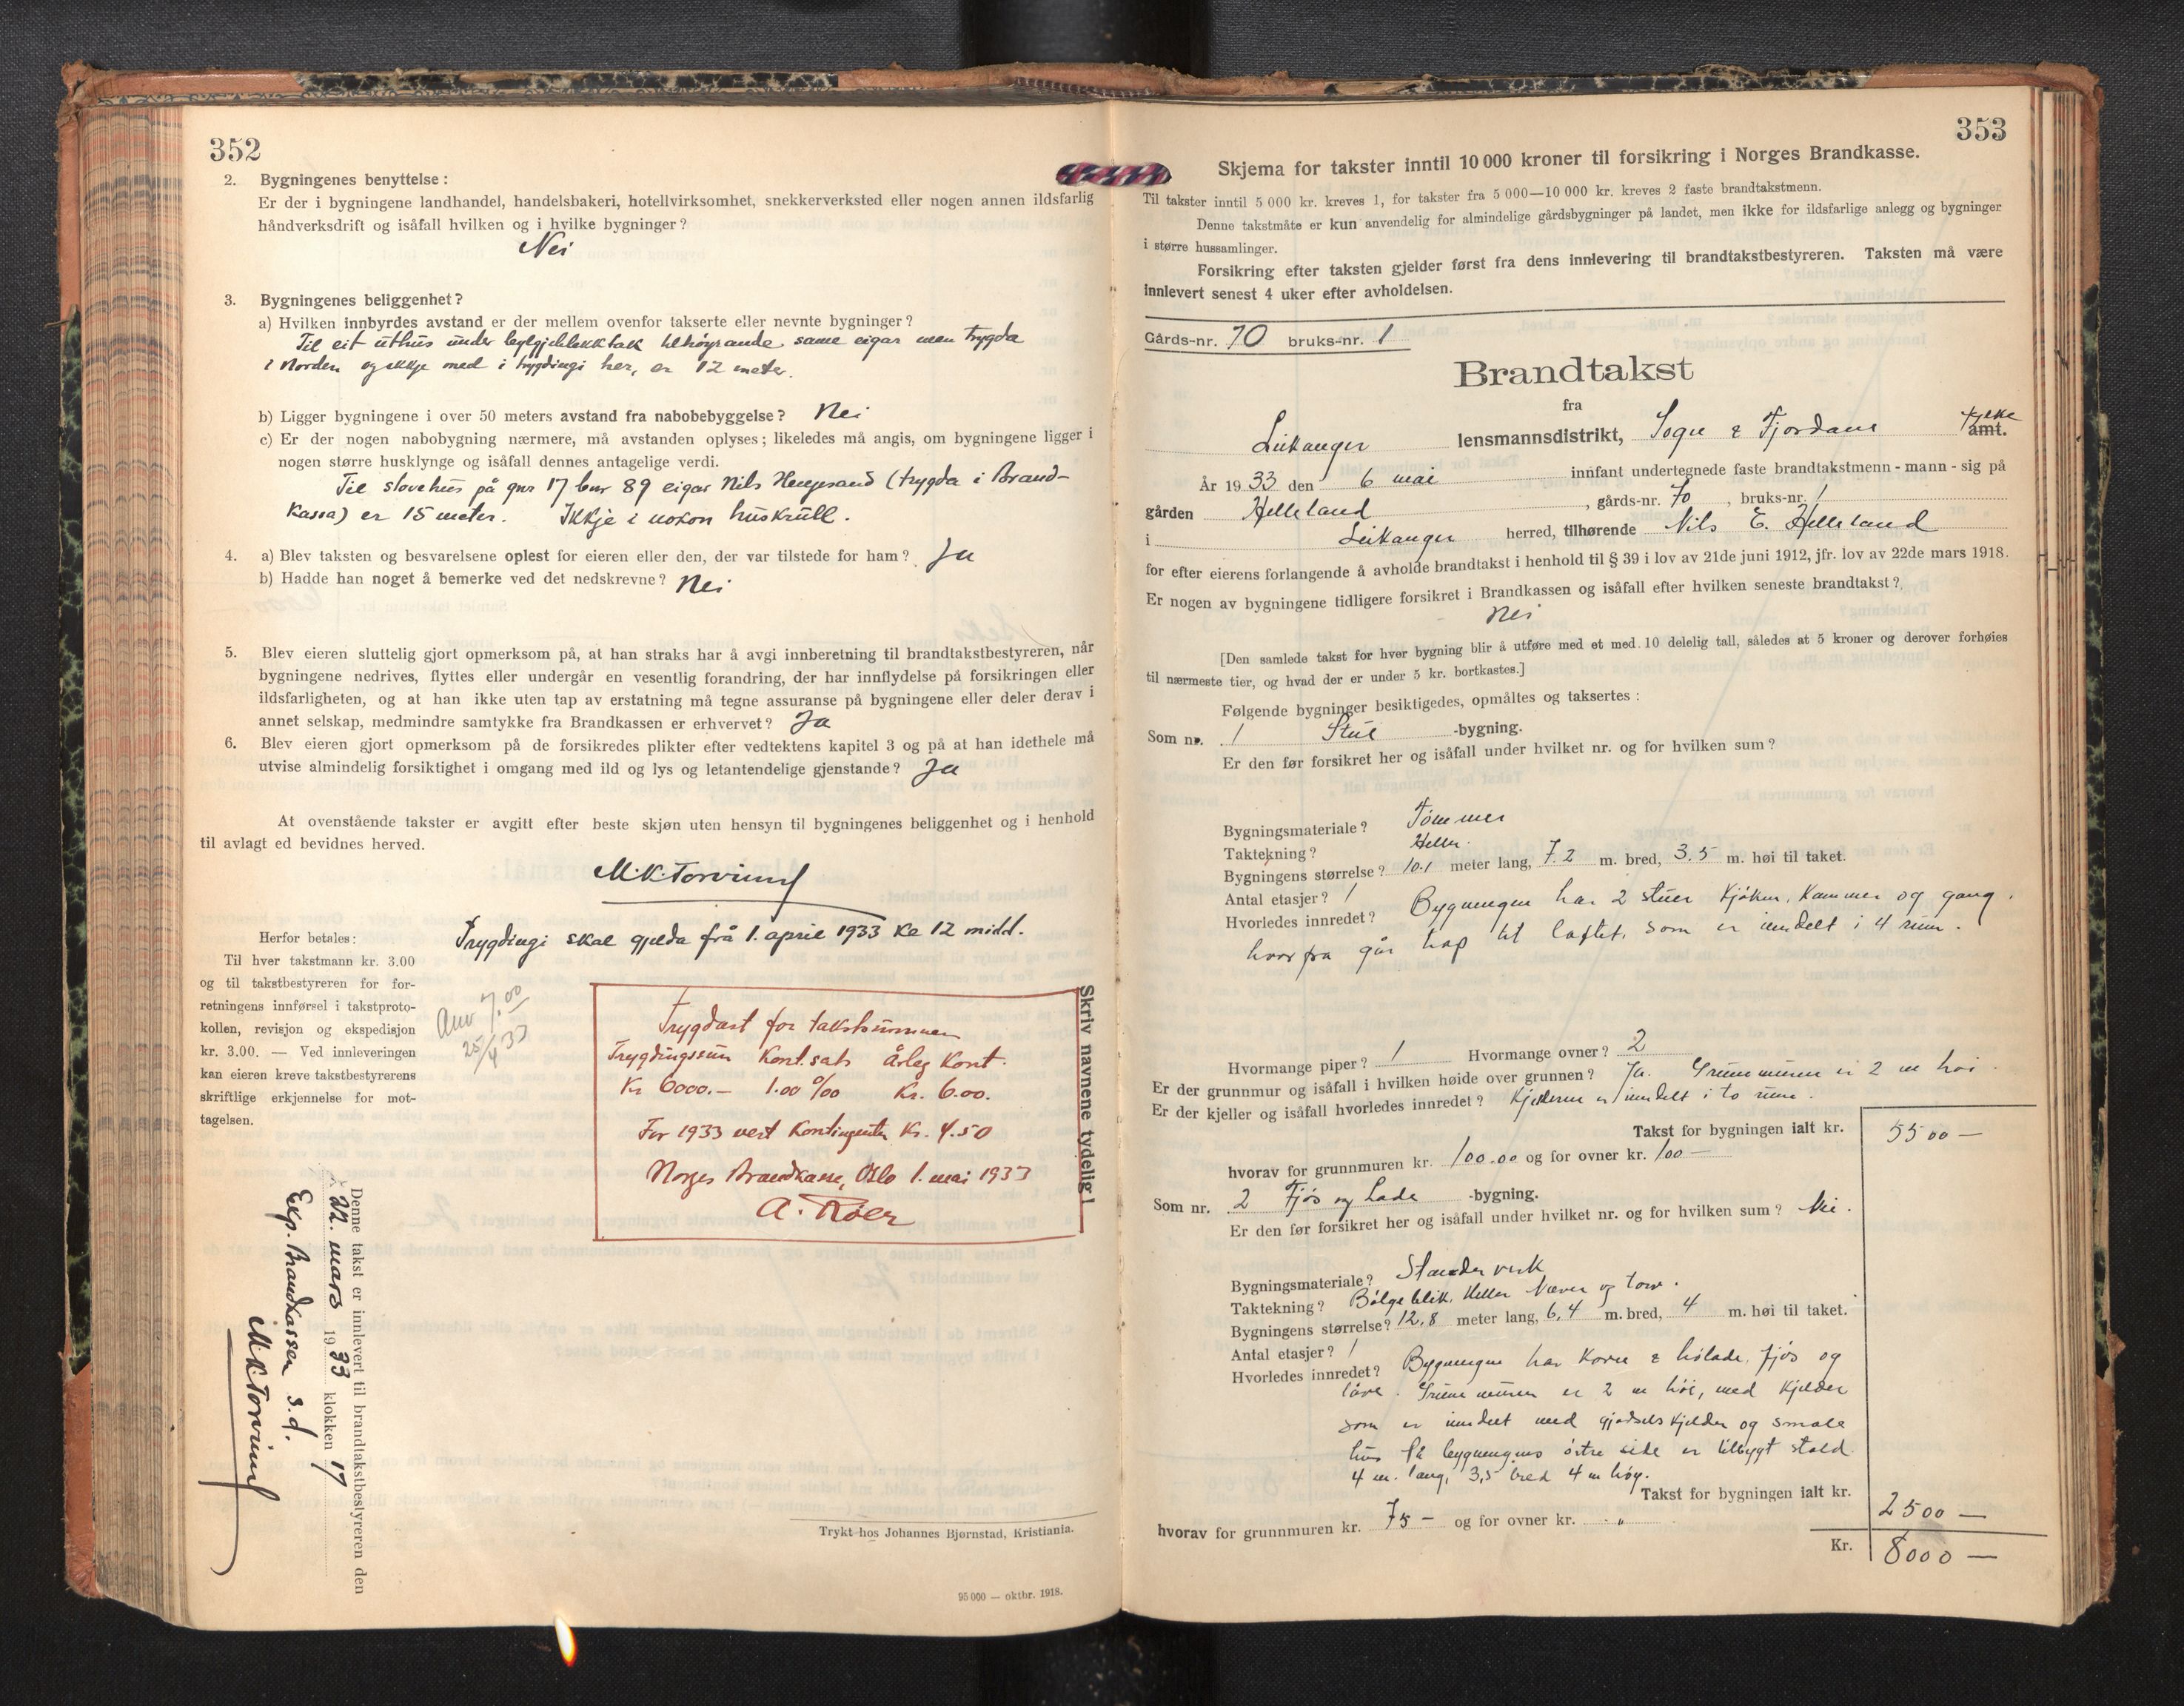 352
2. Bygningenes benyttelse:
Er der i bygningene landhandel, handelsbakeri, hotellvirksomhet, snekkerverksted eller nogen annen ildsfarlig
håndverksdrift og isåfall hvilken og i hvilke bygninger?
Nei
3. Bygningenes beliggenhet?
a) Hvilken innbyrdes avstand er der mellem ovenfor takserte eller nevnte bygninger?
Til eit uthus under bylgjeblekktak tilhøyrande same eigar men trygda
i Norden og ikkje med i trygdingi her, er 12 meter.
b) Ligger bygningene i over 50 meters avstand fra nabobebyggelse? Nei
c) Er der nogen nabobygning nærmere, må avstanden oplyses; likeledes må angis, om bygningene ligger i
nogen større husklynge og isåfall dennes antagelige verdi.
Til stovehus på gnr 17 bnr 89 eigar Nils (trygda i Brand-
kassa) er 15 meter. Ikkje i nokon huskrull.
4. a) Blev taksten og besvarelsene oplest for eieren eller den, der var tilstede for ham? Ja
b) Hadde han noget å bemerke ved det nedskrevne? Nei
5. Blev eieren sluttelig gjort opmerksom på, at han straks har å avgi innberetning til brandtakstbestyreren, når
bygningene nedrives, flyttes eller undergår en vesentlig forandring, der har innflydelse på forsikringen eller
ildsfarligheten, og at han ikke uten tap av erstatning må tegne assuranse på bygningene eller deler derav i
annet selskap, medmindre samtykke fra Brandkassen er erhvervet? Ja
6. Blev eieren gjort opmerksom på de forsikredes plikter efter vedtektens kapitel 3 og på at han idethele må
utvise almindelig forsiktighet i omgang med ild og lys og letantendelige gjenstande? Ja
At ovenstående takster er avgitt efter beste skjøn uten hensyn til bygningenes beliggenhet og i henhold
til avlagt ed bevidnes herved.
M.K. Torvund
Trygdingi skal gjelda frå 1. april 1933 kl 12 midd.
Herfor betales:
Til hver takstmann kr. 3.00
og til takstbestyreren for for-
retningens innførsel i takstproto-
kollen, revisjon og ekspedisjon
kr. 3.00. — Ved innleveringen
kan eieren kreve takstbestyrerens
skriftlige erkjennelse for mot-
tagelsen.
Anv 7.00
25/4 33
Trygdart for takstsummen
Trygdingssum Kont.sats Årleg Kont.
Kr 6000.— 1.00 ‰ Kr. 6.00.
For 1933 vert Kontingenten Kr. 4.50
Norges Brandkasse, Oslo 1. mai 1933
A. Röer
Skriv navnene tydelig!
Denne takst er innlevert til brandtakstbestyreren den
22. mars 1933 klokken 17
Exp. Brandkassen s.d.
M.K. Torvund
Trykt hos Johannes Bjørnstad, Kristiania.
95 000 — oktbr. 1918.
353
Skjema for takster inntil 10 000 kroner til forsikring i Norges Brandkasse.
Til takster inntil 5 000 kr. kreves 1, for takster fra 5 000—10 000 kr. kreves 2 faste brandtakstmenn.
Denne takstmåte er kun anvendelig for almindelige gårdsbygninger på landet, men ikke for ildsfarlige anlegg og bygninger
i større hussamlinger.
Forsikring efter taksten gjelder først fra dens innlevering til brandtakstbestyreren. Taksten må være
innlevert senest 4 uker efter avholdelsen.
Gårds-nr. 70 bruks-nr. 1
Brandtakst
fra
Leikanger lensmannsdistrikt, Sogn & Fjordane fylke amt.
År 1933 den 6 mai innfant undertegnede faste brandtakstmenn - mann - sig på
gården Helleland, gårds-nr. 70, bruks-nr. 1
i Leikanger herred, tilhørende Nils E. Helleland
for efter eierens forlangende å avholde brandtakst i henhold til § 39 i lov av 21de juni 1912, jfr. lov av 22de mars 1918.
Er nogen av bygningene tidligere forsikret i Brandkassen og isåfall efter hvilken seneste brandtakst?
Nei
[Den samlede takst for hver bygning blir å utføre med et med 10 delelig tall, således at 5 kroner og derover forhøies
til nærmeste tier, og hvad der er under 5 kr. bortkastes.]
Følgende bygninger besiktigedes, opmåltes og taksertes:
Som nr. 1 Stue -bygning.
Er den før forsikret her og isåfall under hvilket nr. og for hvilken sum?
Bygningsmateriale? Tømmer
Taktekning? Heller.
Bygningens størrelse? 10.1 meter lang, 7.2 m. bred, 3.5 m. høi til taket.
Antal etasjer? 1
Hvorledes innredet? Bygningen har 2 stuer kjøken, kammer og gang,
hvorfra går trap til loftet, som er inndelt i 4 rum.
Hvormange piper? 1 Hvormange ovner? 2
Er der grunnmur og isåfall i hvilken høide over grunnen? Ja. Grunnmuren er 2 m høi.
Er der kjeller og isåfall hvorledes innredet? Kjelleren er inndelt i to rum.
Takst for bygningen ialt kr. 5500 —
hvorav for grunnmuren kr. 100.00 og for ovner kr. 100 —
Som nr. 2 Fjøs og Lade -bygning.
Er den før forsikret her og isåfall under hvilket nr. og for hvilken sum? Nei.
Bygningsmateriale? Standerverk
Taktekning? Bølgeblik, Heller Never og torv.
Bygningens størrelse? 12,8 meter lang, 6,4 m. bred, 4 m. høi til taket.
Antal etasjer? 1
Hvorledes innredet? Bygningen har korn & hølade, fjøs og
låve. Grunnmuren er 2 m høi, med kjelder
som er inndelt med gjødselskjelder og smale
hus På bygningens østre side er tilbygt stald
4 m. lang, 3,5 bred 4 m høy.
Takst for bygningen ialt kr. 2500 —
hvorav for grunnmuren kr. 75 — og for ovner kr. „
Kr. 8000 —